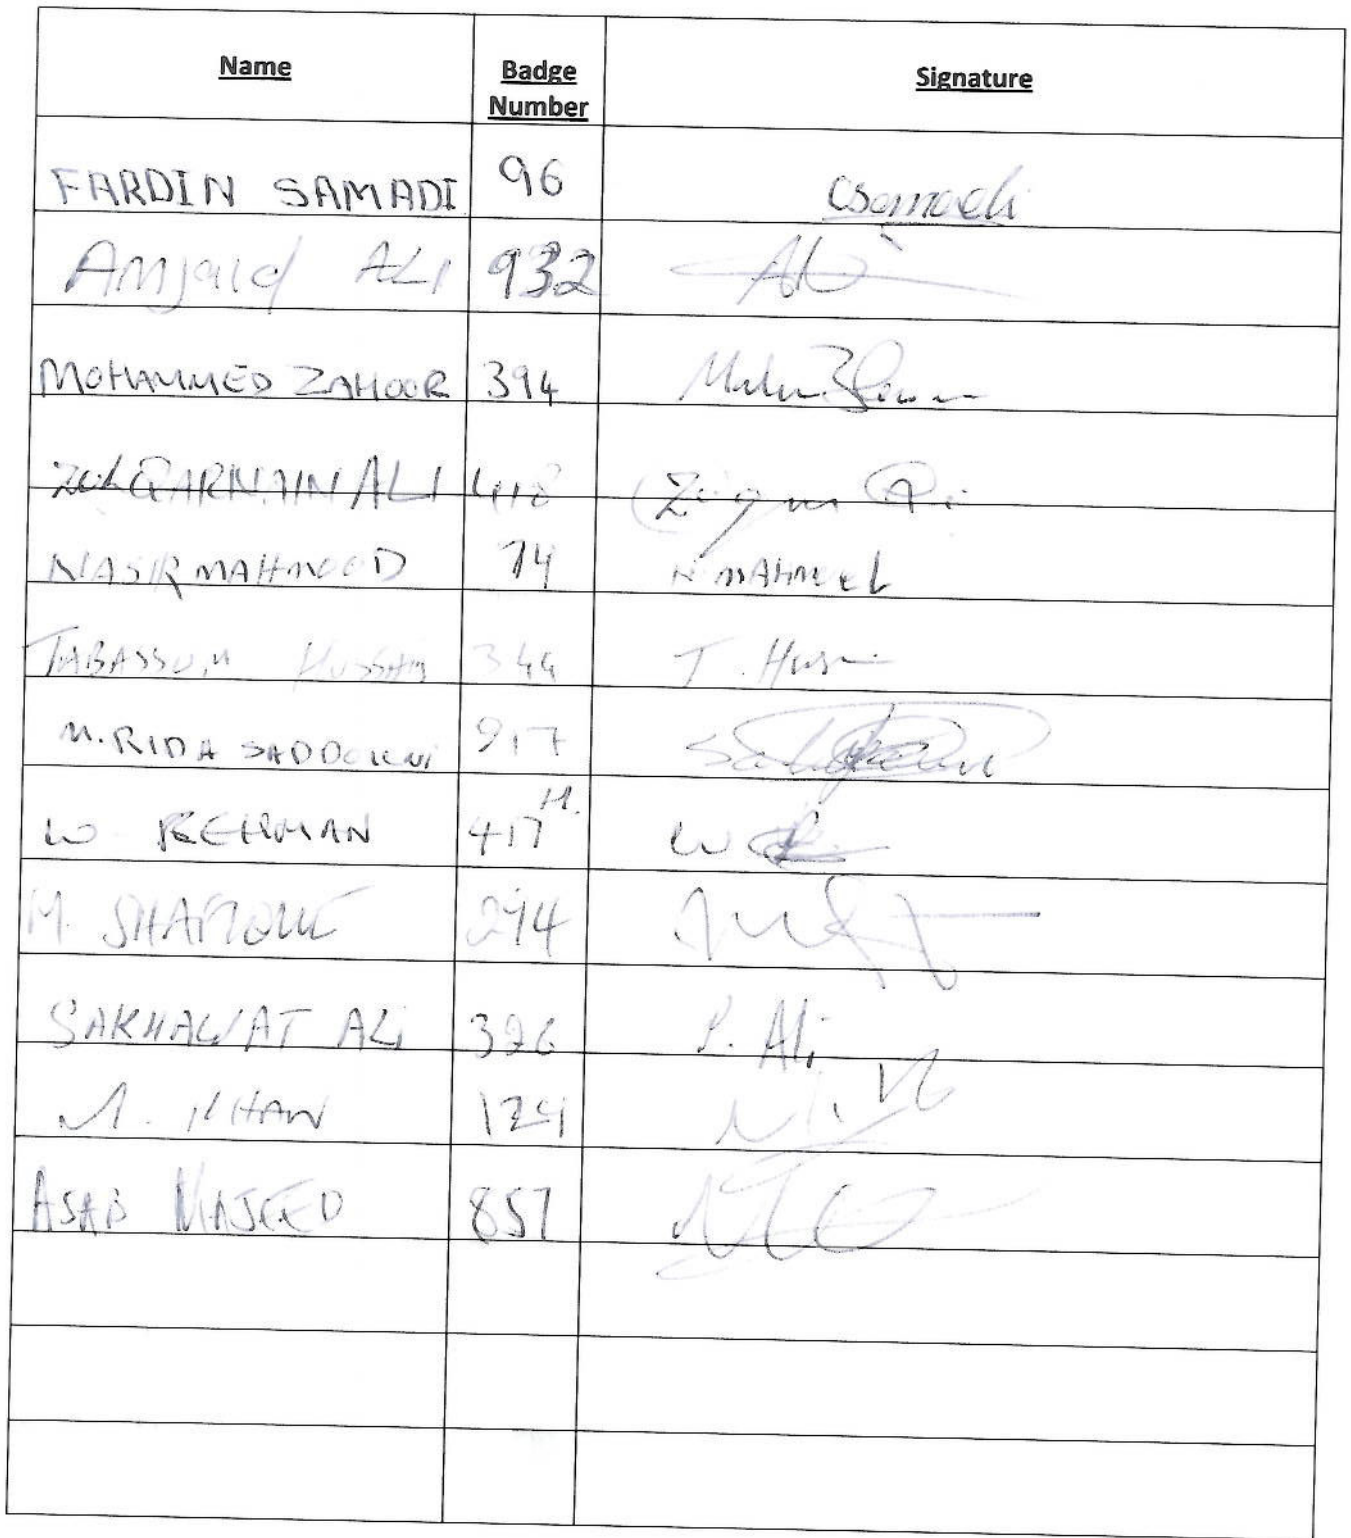 Name Badge Number Signature
FARDIN SAMADI 96 Csamadi
Amjaid ALI 932 Ali
MOHAMMED ZAHOOR 394
ZulQARNAIN ALI 418
NASIR MAHMOOD 74 N MAHMOOD
TABASSUM HUSSAIN 344 T. Husain
M. RIDA SADDOUKI 917
W REHMAN 417 H. W
M. SHAFIQUE 294
SAKHAWAT ALI 396 S. Ali
M. KHAN 124
ASAB MAJEED 857